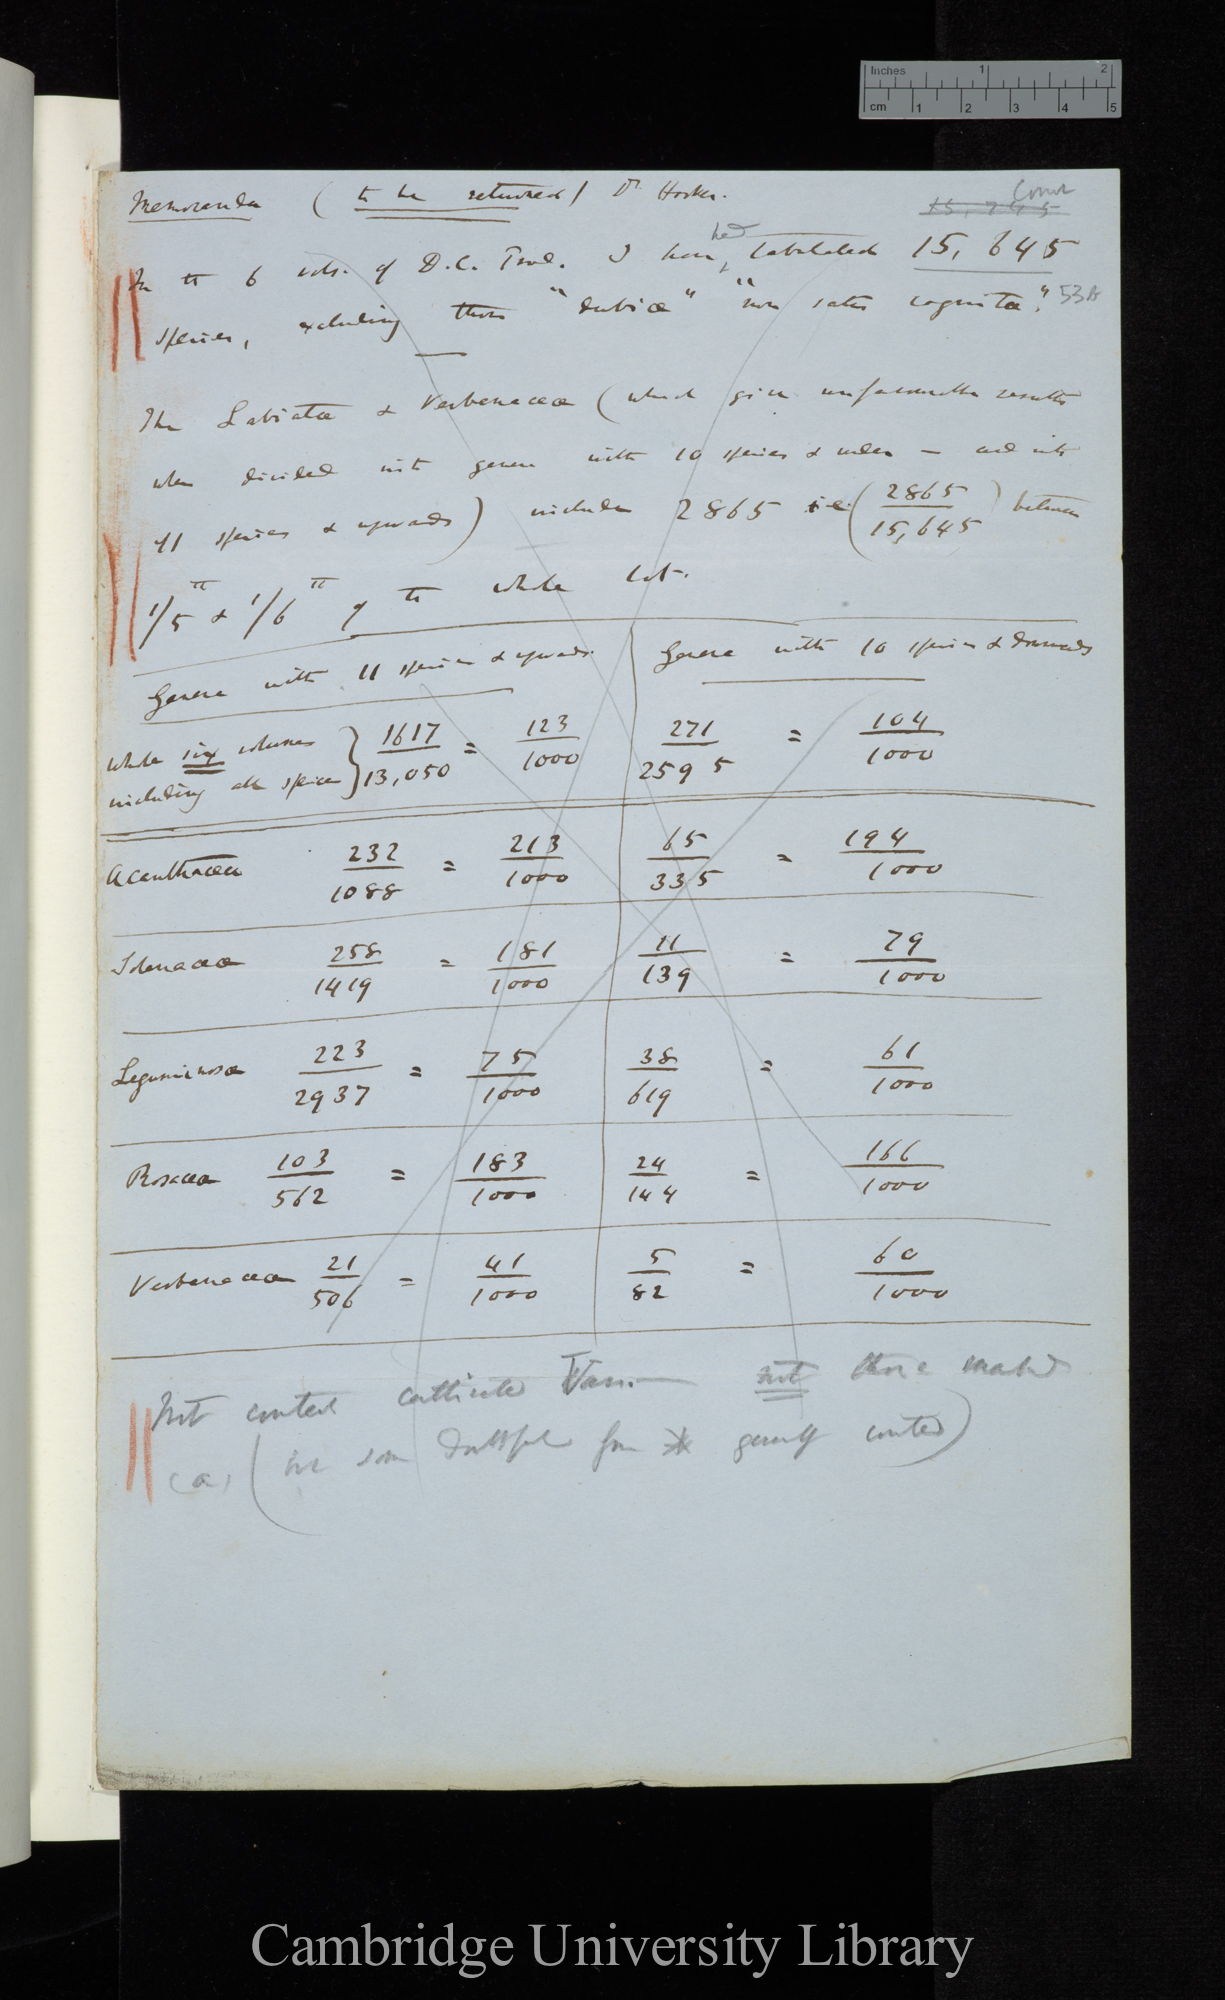 Inches 1 2
cm 1 2 3 4 5
Memoranda (to be returned) Dr. Hooker.
15,745
53A
In the 6 vols. of D.C. Prod. I have had tabulated 15,645
species, excluding those "dubiæ" "non satis cognitæ".
The Labiatæ & Verbenaceæ (which give unfavourable results
when divided into genera with 10 species & under — and into
11 species & upwards) include 2865 i.e. (2865/15,645) between
1/5th & 1/6th of the whole lot.
Genera with 11 species & upwards. Genera with 10 species & downwards
Whole six volumes including all species } 1617/13,050 = 123/1000 271/2595 = 104/1000
Acanthaceæ 232/1088 = 213/1000 65/335 = 194/1000
Solanaceæ 258/1419 = 181/1000 11/139 = 79/1000
Leguminosæ 223/2937 = 75/1000 38/619 = 61/1000
Rosaceæ 103/562 = 183/1000 24/144 = 166/1000
Verbenaceæ 21/506 = 41/1000 5/82 = 60/1000
Not counted cultivated Vars. — not those marked
(a) (but some doubtful from generally counted)
Cambridge University Library